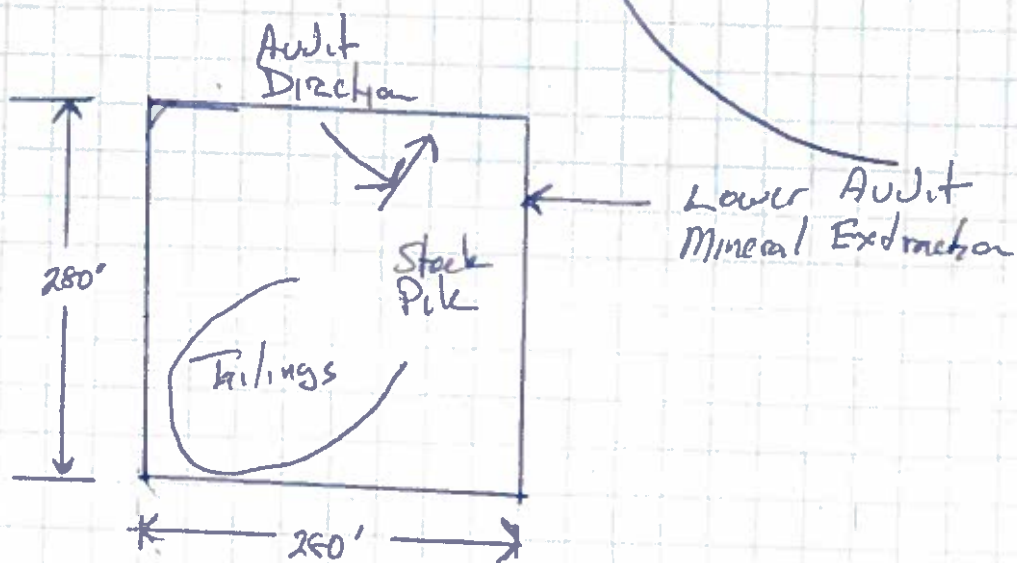 Audit
Direction
280'
Lower Audit
Mineral Extraction
Stock
Pile
Tailings
280'